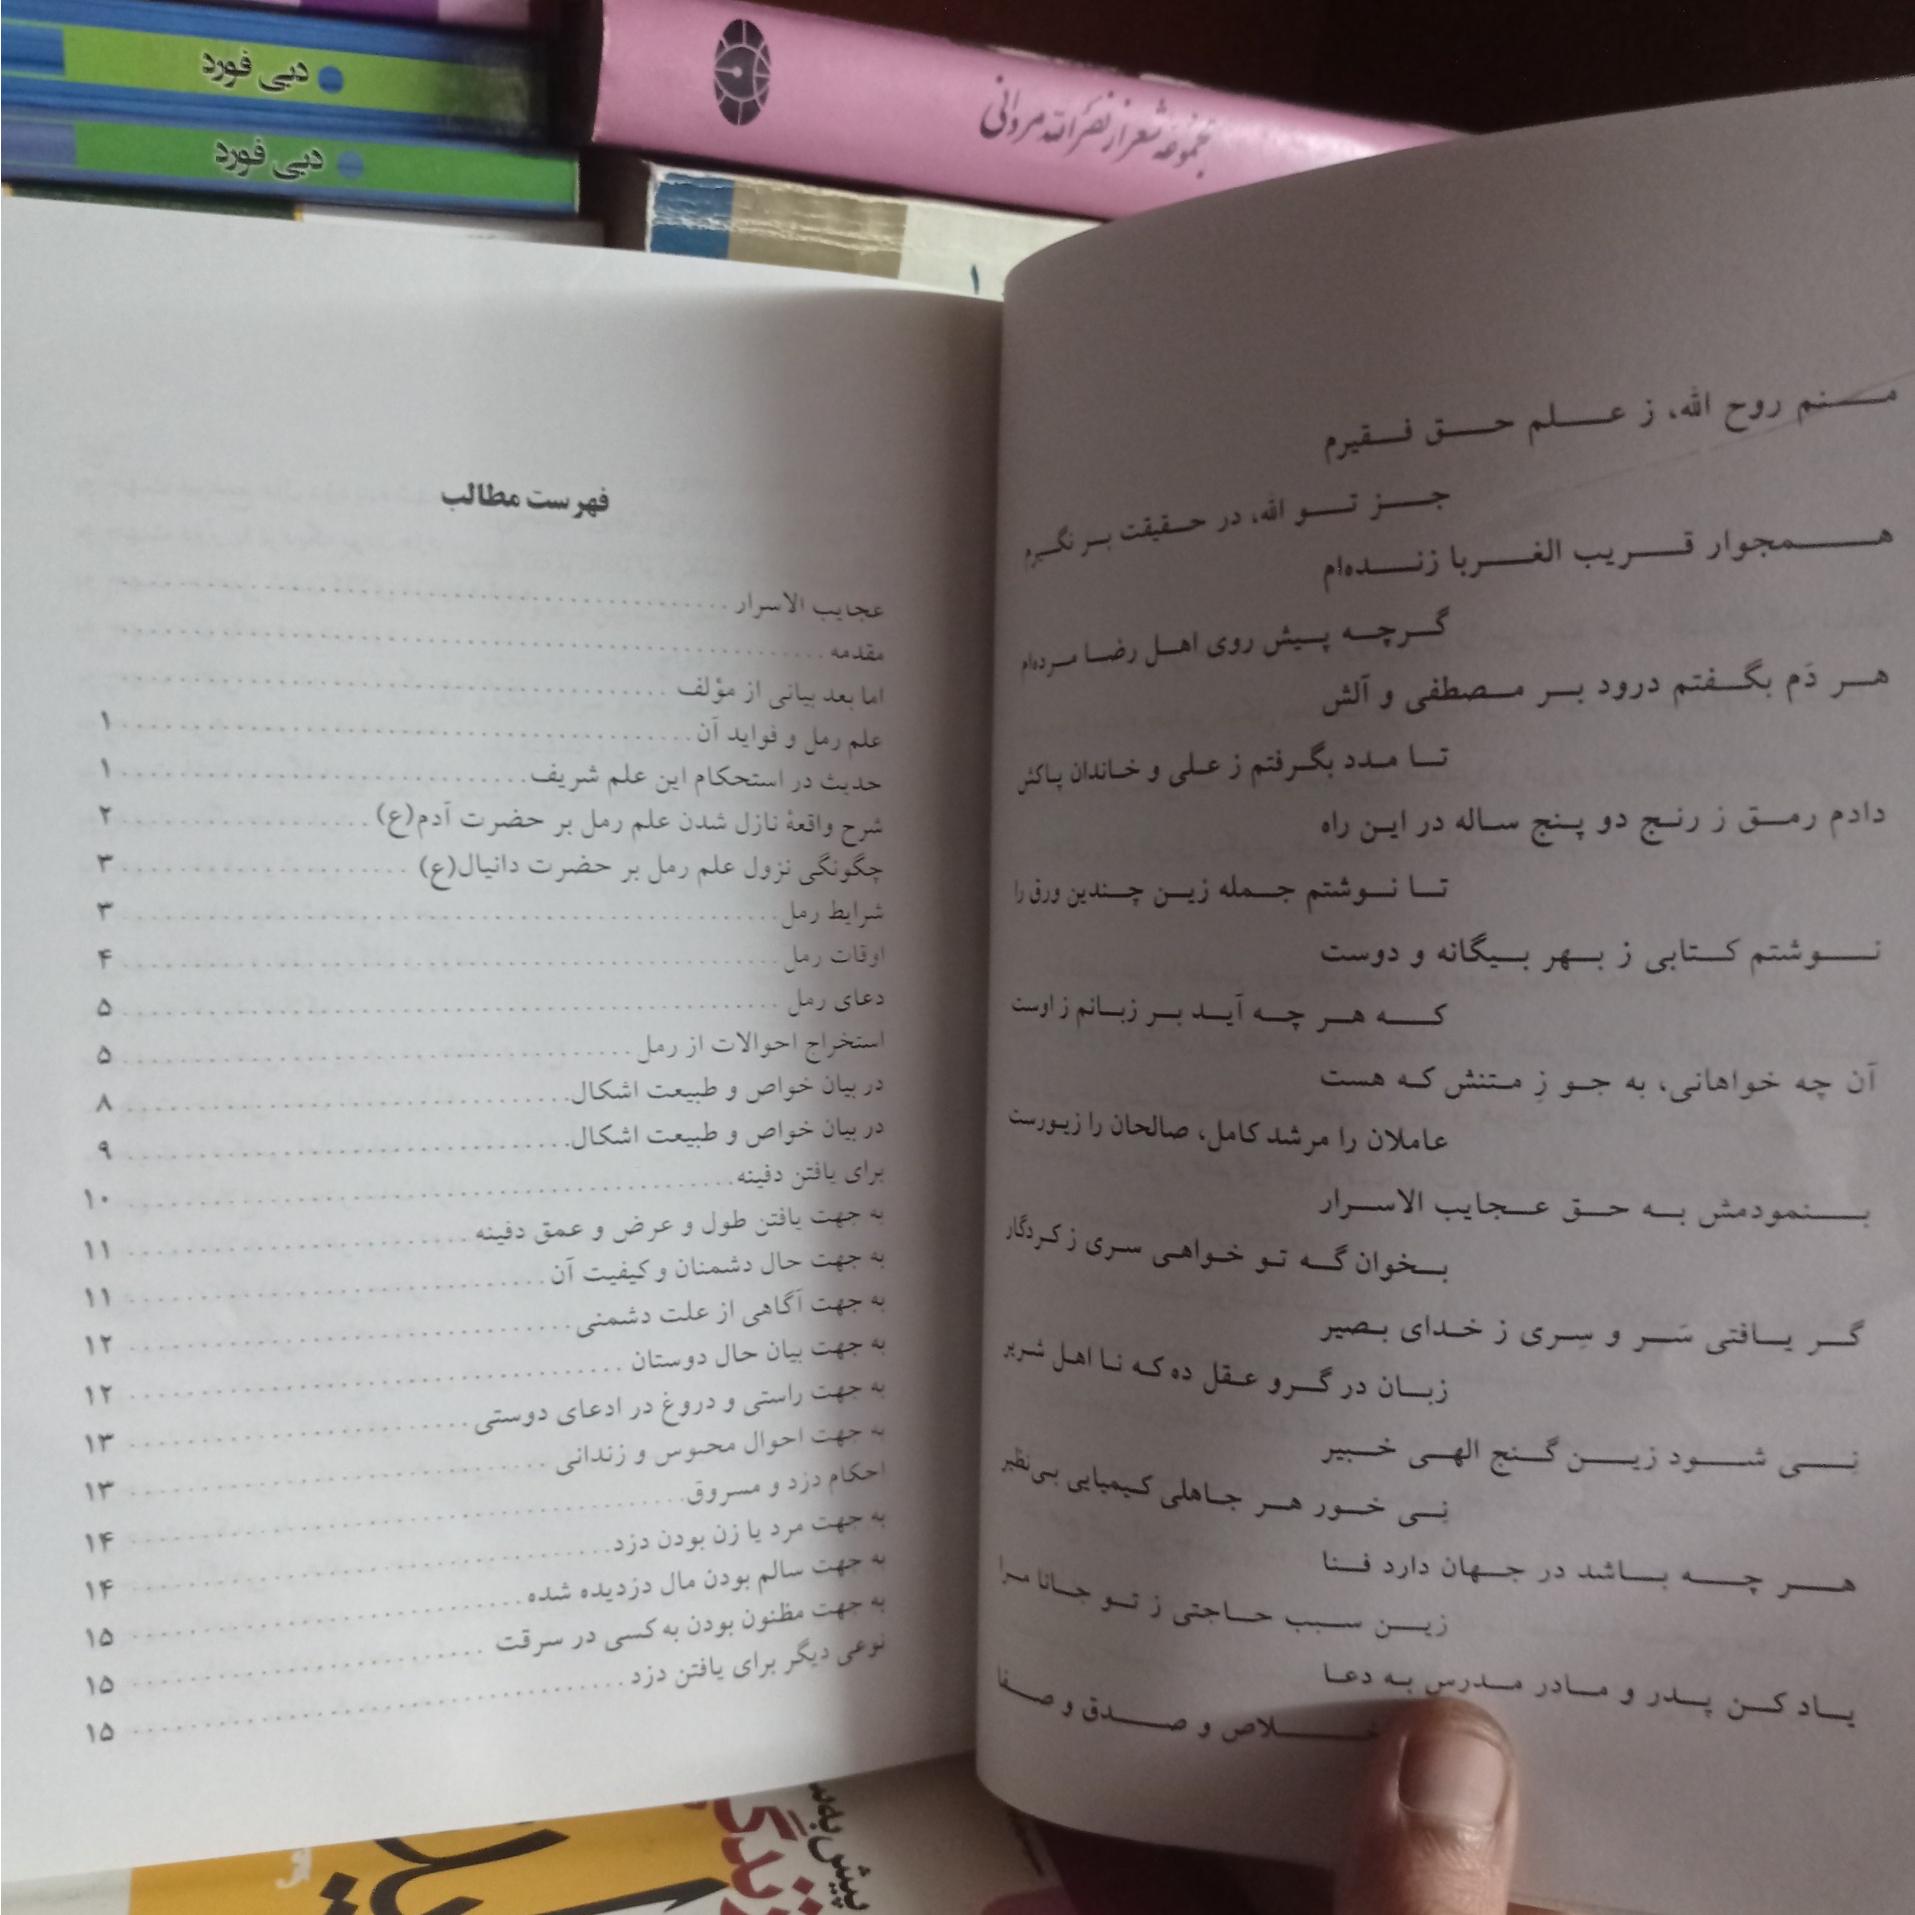 دبی فورد
دبی فورد
مجموعه شعر از نصرالله مردانی
۱
مـنم روح الله، ز عـلم حـق فـقیرم
جـز تـو الله، در حـقیقت بـر نگیرم
هـمجوار قـریب الغـربا زنـده‌ام
گـرچـه پـیش روی اهـل رضـا مـرده‌ام
هـر دَم بگـفتم درود بـر مـصطفی و آلش
تـا مـدد بگـرفتم ز عـلی و خـاندان پـاکش
دادم رمـق ز رنـج دو پـنج سـاله در ایـن راه
تـا نـوشتم جـمله زیـن چـندین ورق را
نـوشتم کـتابی ز بـهر بـیگانه و دوست
کـه هـر چـه آیـد بـر زبـانم ز اوست
آن چه خواهانی، به جـو زِ مـتنش کـه هست
عاملان را مرشد کامل، صالحان را زیـورست
بـنمودمش بـه حـق عـجایب الاسـرار
بـخوان گـه تـو خـواهـی سـری ز کـردگار
گـر یـافتی سَـر و سِـری ز خـدای بـصیر
زبـان در گـرو عـقل ده کـه نـا اهـل شریر
نِـی شـود زیـن گـنج الهـی خـبیر
نِـی خـور هـر جـاهلی کـیمیایی بـی‌نظیر
هـر چـه بـاشد در جـهان دارد فـنا
زیـن سـبب حـاجتی ز تـو جـانا مـرا
یـاد کـن پـدر و مـادر مـدرس بـه دعـا
ـلاص و صـدق و صـفا
فهرست مطالب
عجایب الاسرار
مقدمه
اما بعد بیانی از مؤلف
علم رمل و فواید آن ۱
حدیث در استحکام این علم شریف ۱
شرح واقعهٔ نازل شدن علم رمل بر حضرت آدم(ع) ۲
چگونگی نزول علم رمل بر حضرت دانیال(ع) ۳
شرایط رمل ۳
اوقات رمل ۴
دعای رمل ۵
استخراج احوالات از رمل ۵
در بیان خواص و طبیعت اشکال ۸
در بیان خواص و طبیعت اشکال ۹
برای یافتن دفینه ۱۰
به جهت یافتن طول و عرض و عمق دفینه ۱۱
به جهت حال دشمنان و کیفیت آن ۱۱
به جهت آگاهی از علت دشمنی ۱۲
به جهت بیان حال دوستان ۱۲
به جهت راستی و دروغ در ادعای دوستی ۱۳
به جهت احوال محبوس و زندانی ۱۳
احکام دزد و مسروق ۱۴
به جهت مرد یا زن بودن دزد ۱۴
به جهت سالم بودن مال دزدیده شده ۱۵
به جهت مظنون بودن به کسی در سرقت ۱۵
نوعی دیگر برای یافتن دزد ۱۵